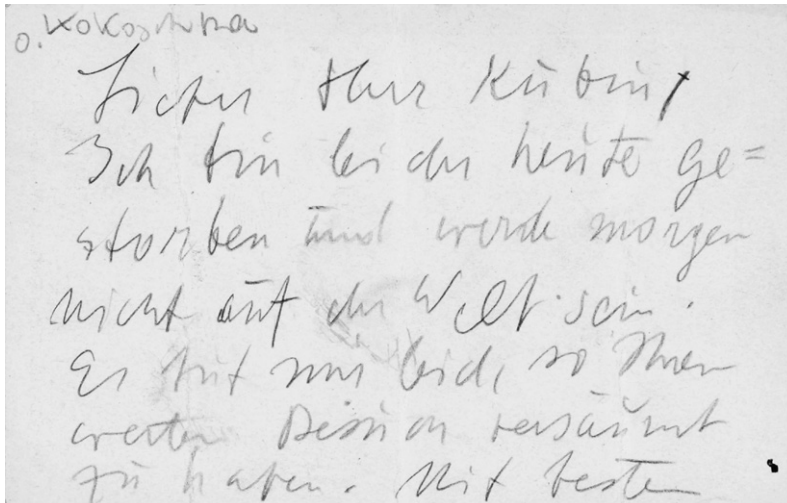 O. Kokoschka
Lieber Herr Kubin,
Ich bin leider heute ge=
storben und werde morgen
nicht auf der Welt sein.
Es tut mir leid, so Ihren
werten Besuch versäumt
zu haben. Mit besten